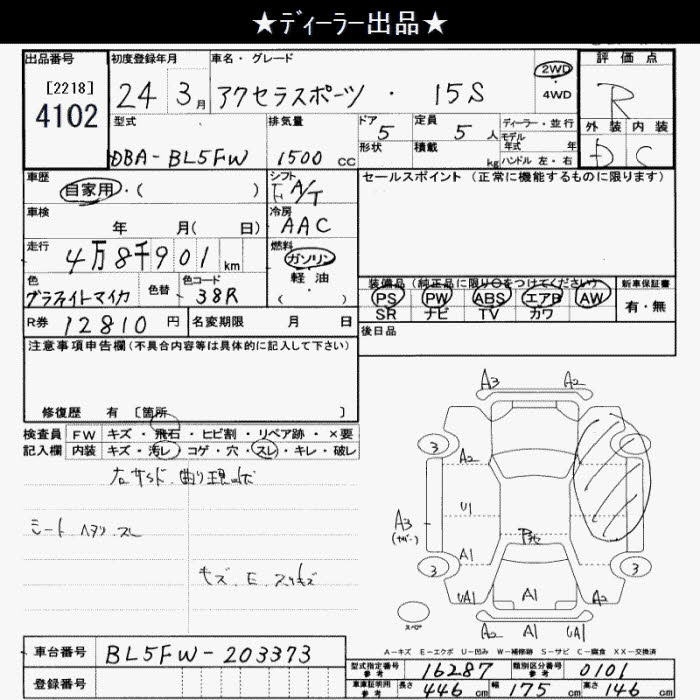 ★ディーラー出品★
出品番号 初度登録年月 車名・グレード 評価点
[2218] 24 3月 アクセラスポーツ ・ 15S 2WD・4WD R
4102 型式 排気量 ドア 定員 ディーラー・並行 外装 内装
DBA-BL5FW 1500cc 5 5人 モデル年式 年 D C
形状 積載 kg ハンドル 左・右
車歴 シフト セールスポイント (正常に機能するものに限ります)
自家用・( ) F A/T
車検 冷房
年 月( 日) AAC
走行 燃料
4万8千901km ガソリン・軽油
色 色替 色コード 装備品 (純正品に限り○をつけてください) 新車保証書
グラファイトマイカ 38R ( ) PS PW ABS エアB AW 有・無
SR ナビ TV カワ
R券 12810円 名変期限 月 日 後日品
注意事項申告欄(不具合内容等は具体的に記入して下さい)
修復歴 有 [箇所 ]
検査員 FW キズ・飛石・ヒビ割・リペア跡・×要
記入欄 内装 キズ・汚レ・コゲ・穴・スレ・キレ・破レ
シート ヘタリ スレ
キズ E
A3 A2
3 3
A2
U1
A3
A1
3 3
UA1 A1 A2
スペア
A2 A1 UA1
A-キズ E-エクボ U-凹み W-補修跡 S-サビ C-腐食 XX-交換済
車台番号 BL5FW-203373
登録番号
型式指定番号 参考 16287 類別区分番号 参考 0101
車庫証明用 参考 長さ 446cm 幅 175cm 高さ 146cm